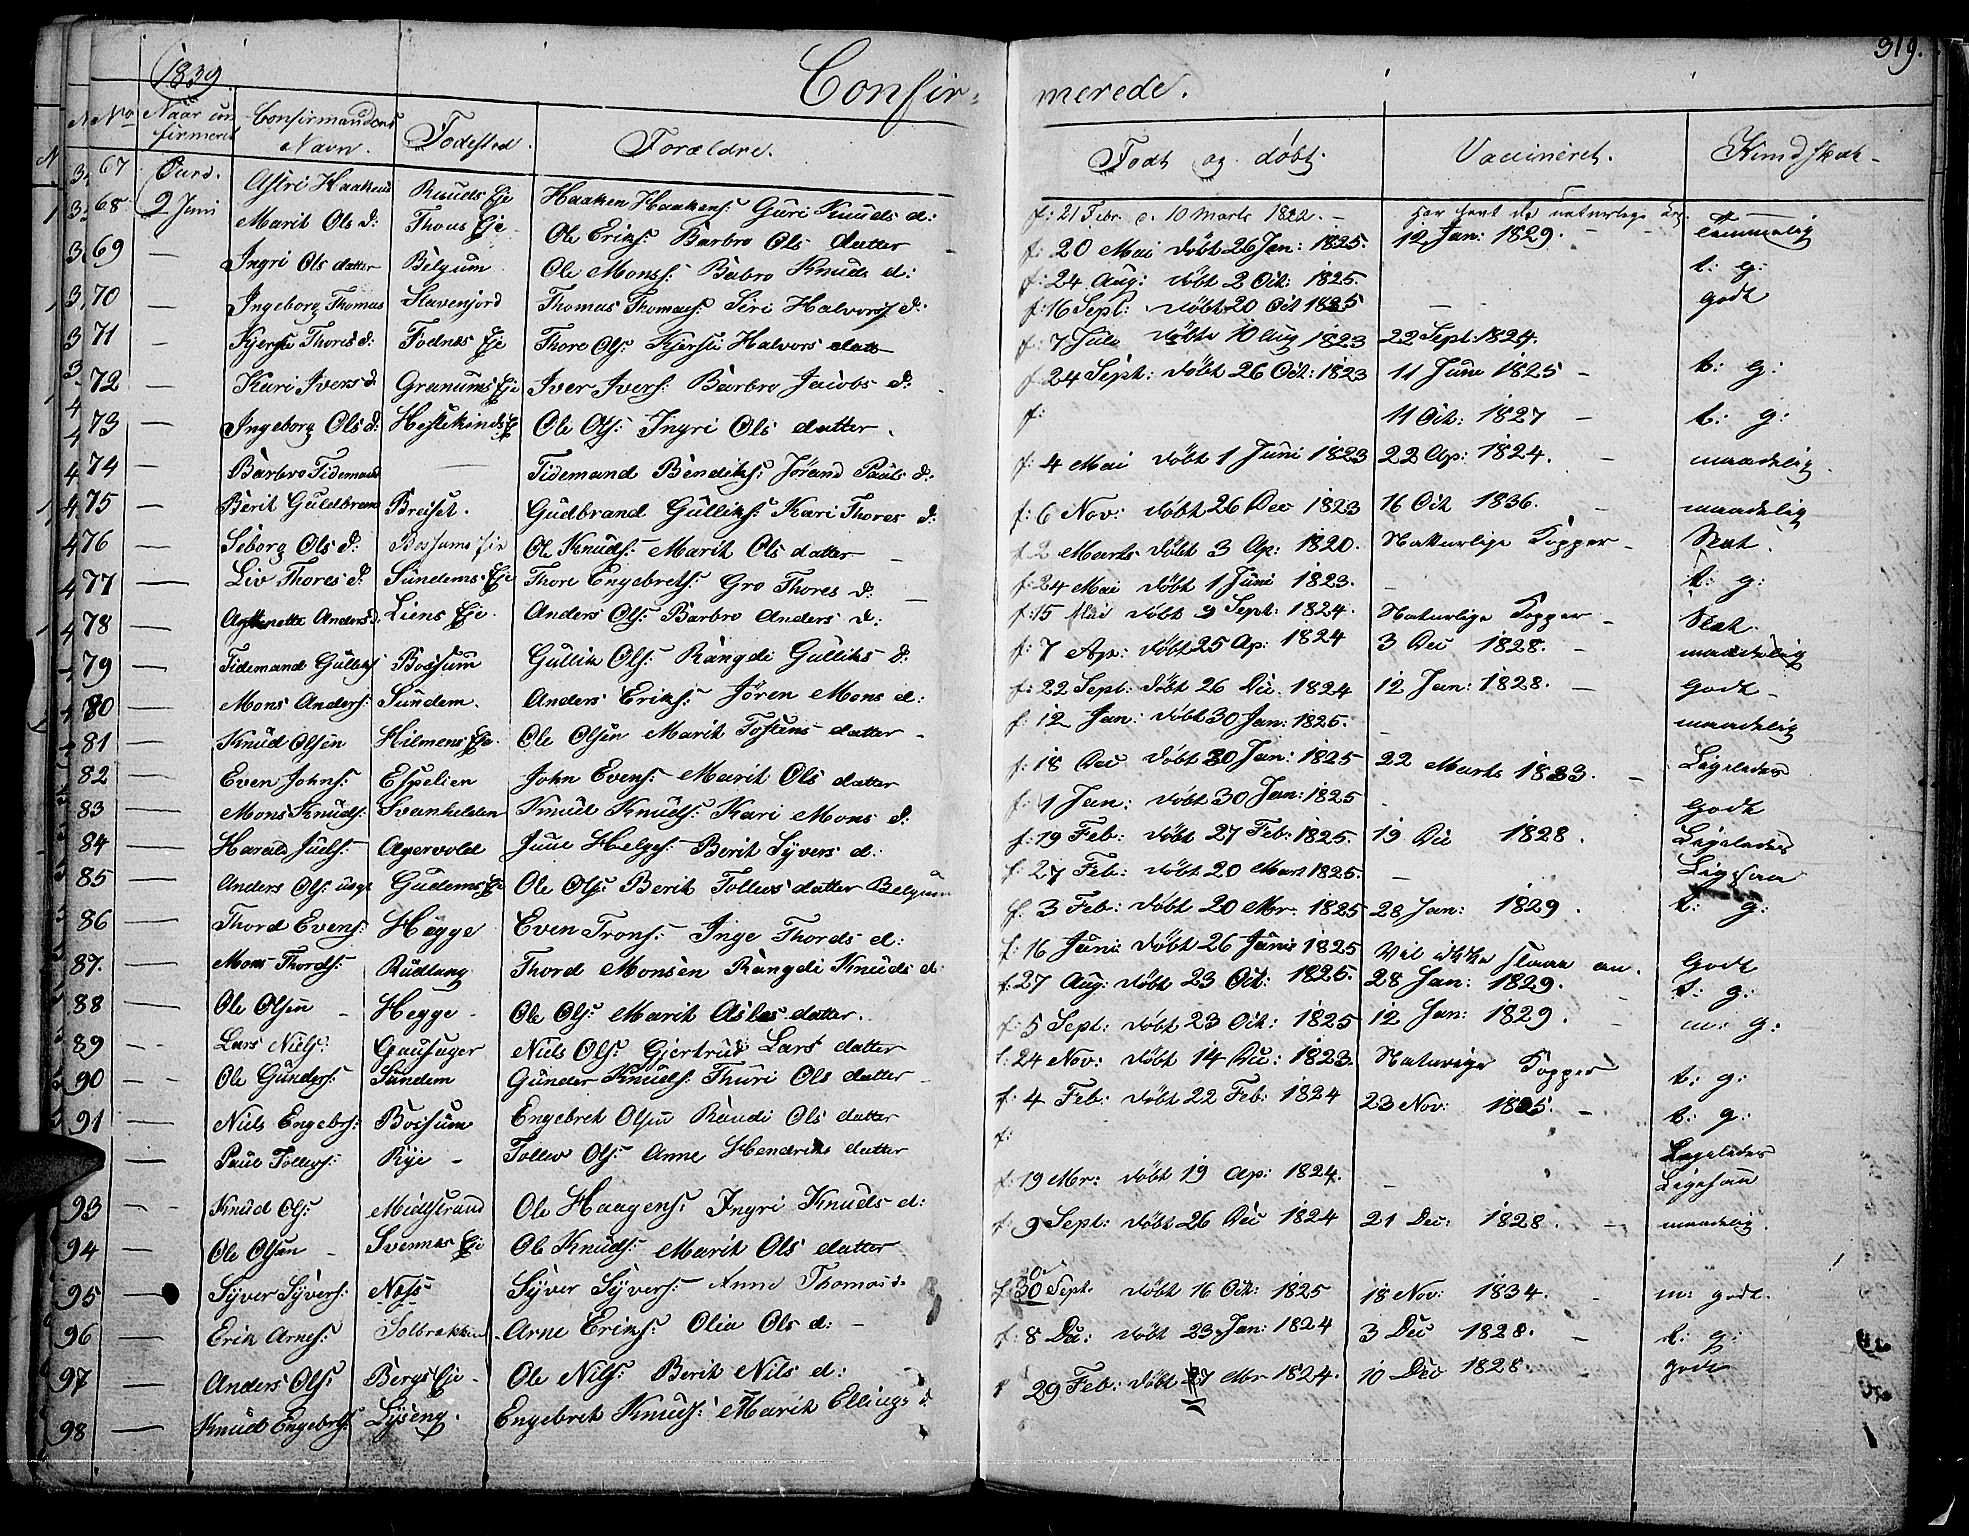 1839.
Confir- merede.
319.
No Naar con firmeret Confirmandens Navn. Fodested. Forældre. Født og døbt. Vaccineret. Kundskab
67 Aurd. Astri Haakens Ruuds Eje Haaken Haakens: Guri Knuds d: f: 21 Febr. d. 10 Marts 1822. - har havt de naturlige Kop. Temmelig
68 2 Juni Marit Ols d: Thons Eje Ole Eriks: Barbro Ols datter - f: 20 Mai døbt 26 Jan: 1825. 12 Jan: 1829. t: g:
69 - Ingri Ols datter Belgum Ole Monss: Babro Knuds d: f: 24 Aug: døbt 2 Oct: 1825. godt
70 - Ingeborg Thomas Slavenjord Thomas Thomass: Siri Halvors d: f: 16 Sept: døbt 20 Oct 1825 -
71 - Kjersti Thores d: Fodnes Eje Thore Ols: Kjersti Halvors datt f: 7 Jule døbt 10 Aug 1823 22 Sept: 1824. t: g:
72 - Kari Ivers d Granums Eje Iver Ivers: Barbro Jacobs d: f: 24 Sept: døbt 26 Oct: 1823 11 Juni 1825 - t: g:
73 - Ingeborg Ols d: Hestekinds E Ole Ols: Ingri Ols datter. f: 11 Oct: 1827 - maadelig
74 - Barbro Tidemand - Tidemand Bendiks: Jørand Pauls d: f: 4 Mai døbt 1 Juni 1823 22 Ap: 1824. - maadelig
75 - Berit Guldbrans Breiset. Gudbrand Gulliks: Kari Thores d: f: 6 Nov: døbt 26 Dec 1823 16 Oct 1836. Slet.
76 - Siborg Ols d: Bossums Eie Ole Knuds: Marit Ols datter - f. 2 Marts døbt 3 Ap: 1820. Naturlige Kopper - t: g:
77 - Liv Thores d: Sundems Eje Thore Engebrets: Gro Thores d: - f: 24 Mai døbt 1 Juni 1823. - Slet.
78 - Anders d. Liens Eje. Anders Ols: Barbro Anders d: f: 15 Mai døbt 9 Sept: 1824. Naturlige Kopper - maadelig
79 - Tidemand Gulliks Bossum Gullik Ols: Rangdi Gulliks d: f: 7 Ap: døbt 25 Ap: 1824 3 Dec 1828. - Godt -
80 - Mons Anders: Sundem. Anders Eriks: Jören Mons d: f: 22 Sept: døbt 26 Dec. 1824 12 Jan: 1828. - maadelig
81 - Knud Olsen Hilmens Eje. Ole Olsen Marit Tostens datter - f: 12 Jan: døbt 30 Jan: 1825. - Ligeledes
82 - Even Johns: Espelien John Evens: Marit Ols datter f: 18 Dec døbt 30 Jan: 1825 22 Marts 1833. - Godt
83 - Mons Knuds: Svanhelden Knud Knuds: Kari Mons d: f: 1 Jan: døbt 30 Jan: 1825 - Ligeledes
84 - Harald Juels: Agervold Juul Helges: Berit Syvers d: f: 19 Feb: døbt 27 Feb: 1825. 19 Dec 1828. Ligesaa
85 - Anders Ols: Gudems Eje Ole Ols: Berit Tollevs datter Belgum f: 27 Feb: døbt 20 Mart 1825. - t: g:
86 - Thord Evens: Hegge Even Trons: Inge Thords d: f: 3 Feb: døbt 20 Mr. 1825 28 Jan: 1829.
87. - Mons Thords: Rudlang Thord Monsen Rangdi Knuds d: f: 16 Juni: døbt 26 Juni 1825 Vil ikke slaae an. Godt
88 - Ole Olsen - Hegge - Ole Ols: Marit Asles datter. f: 27 Aug: døbt 23 Oct: 1825. 28 Jan: 1829. t: g:
89 - Lars Niels: Gausager Niels Ols: Gjertrud Lars datter f: 5 Sept: døbt 23 Oct: 1825 12 Jan: 1829. m: g:
90 - Ole Gunders: Sundem Gunder Knuds: Thuri Ols datter - f: 24 Nov: døbt 14 Dec: 1823. Naturige Kopper t: g:
91 - Niels Engebrs: Bossum Engebret Olsen Randi Ols datter f: 4 Feb: døbt 22 Feb: 1824 23 Nov: 1825. - t: g:
- Paul Tollevs: Rye - Tollev Ols: Anne Hendriks datter f: Ligeledes
93 - Knud Ols: Midstrand Ole Haagens: Ingri Knuds d: f: 19 Mr: døbt 19 Ap: 1824. - Ligesaa
94 - Ole Olsen - Svennes Eje Ole Knuds: Marit Ols datter f: 9 Sept: døbt 26 Dec 1824 21 Dec: 1828. - maadelig.
95 - Syver Syvers: Ness Syver Syvers: Anne Thomas d f: 30 Sept. døbt 16 Oct: 1825 18 Nov: 1834. - m: godt.
96 - Erik Arnes: Solbrekken Arne Eriks: Olia Ols d: - f: 8 Dec: døbt 23 Jan: 1824 3 Dec 1828. - t: g:
97 - Anders Ols: Bergs Eje - Ole Nils: Berit Nils d: f 29 Feb: døbt 27 Mr 1824. 10 Dec 1828. godt
98 - Knud Engebrts: Lyseng. Engebret Knuds: Marit Ellings d.